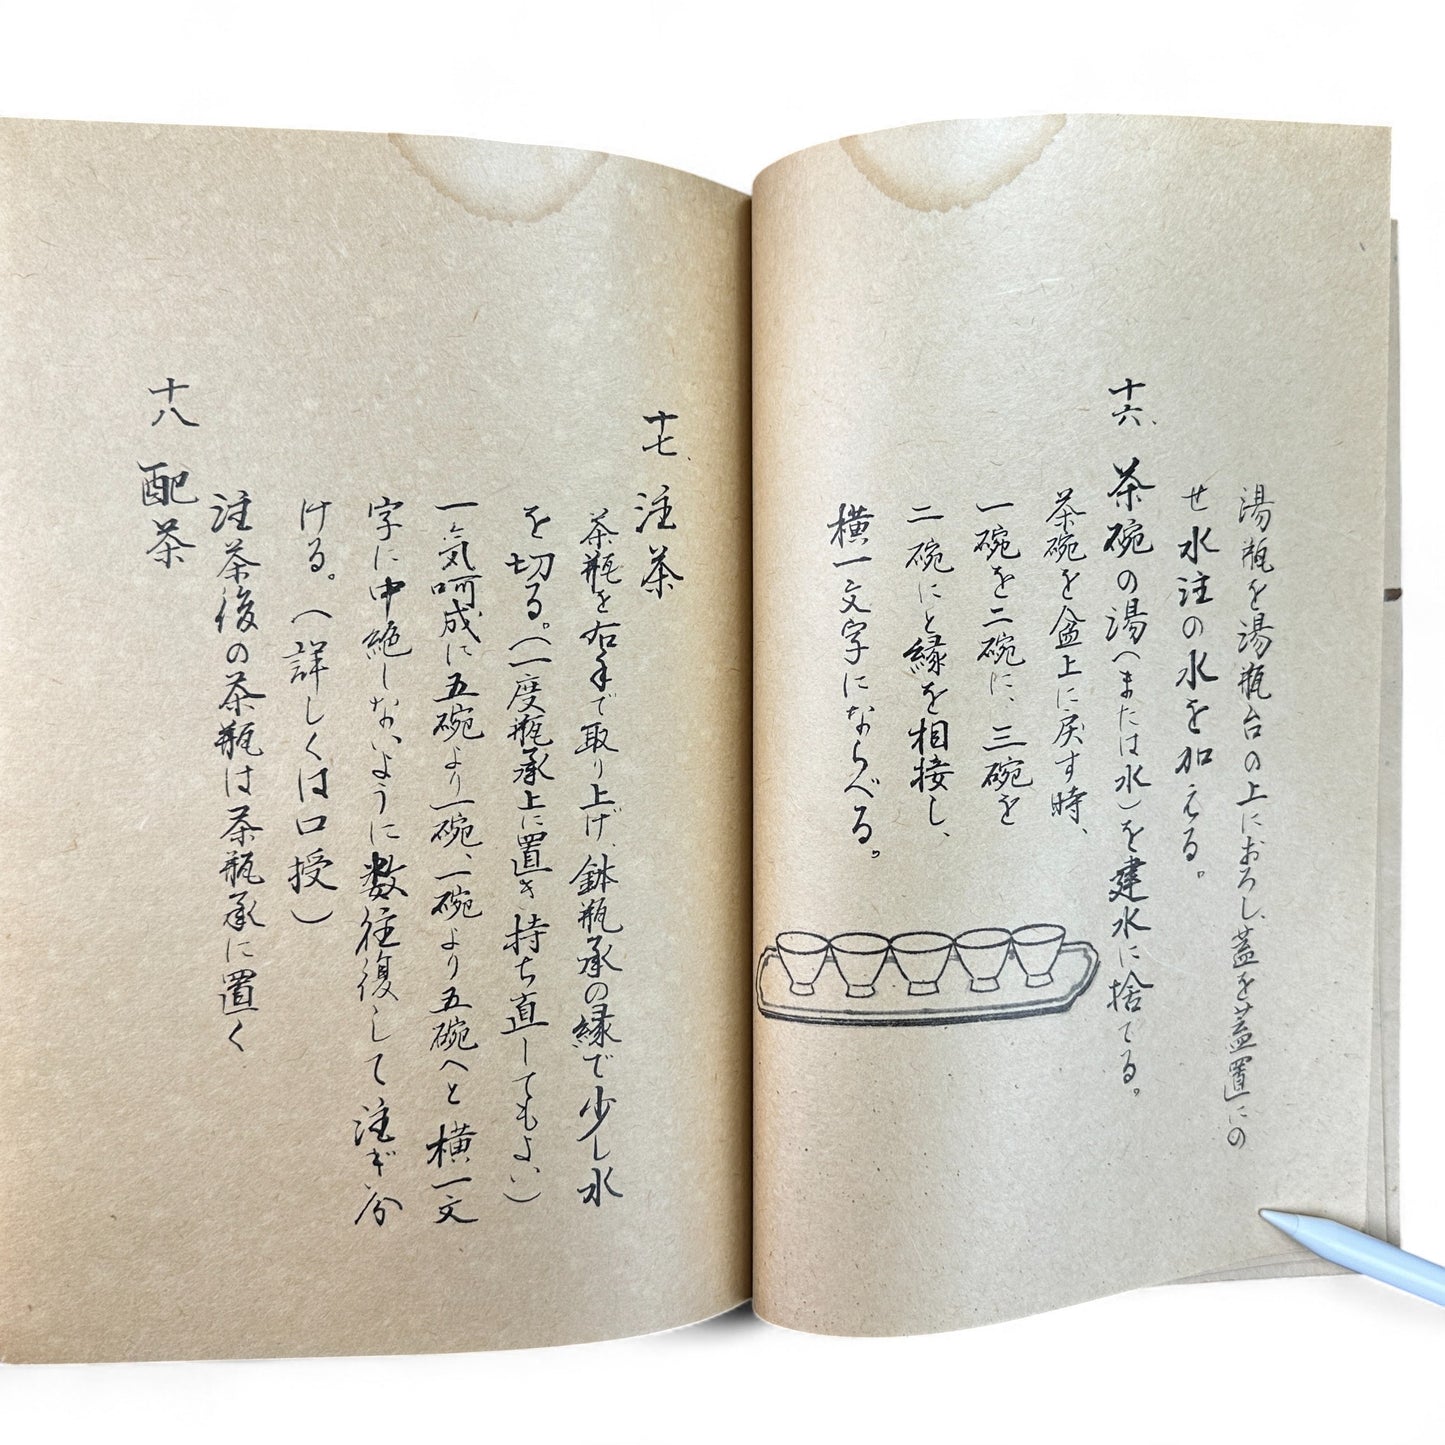 湯瓶を湯瓶台の上におろし、蓋を蓋置にの
せ水注の水を加える。
十六、茶碗の湯(または水)を建水に捨てる。
茶碗を盆上に戻す時、
一碗を二碗に、三碗を
二碗にと縁を相接し、
横一文字にならべる。
十七、注茶
茶瓶を右手で取り上げ、鉢瓶承の縁で少し水
を切る。(一度瓶承上に置き持ち直してもよい)
一気呵成に五碗より一碗、一碗より五碗へと横一文
字に中絶しないように数往復して注ぎ分
ける。(詳しくは口授)
注茶後の茶瓶は茶瓶承に置く
十八 配茶